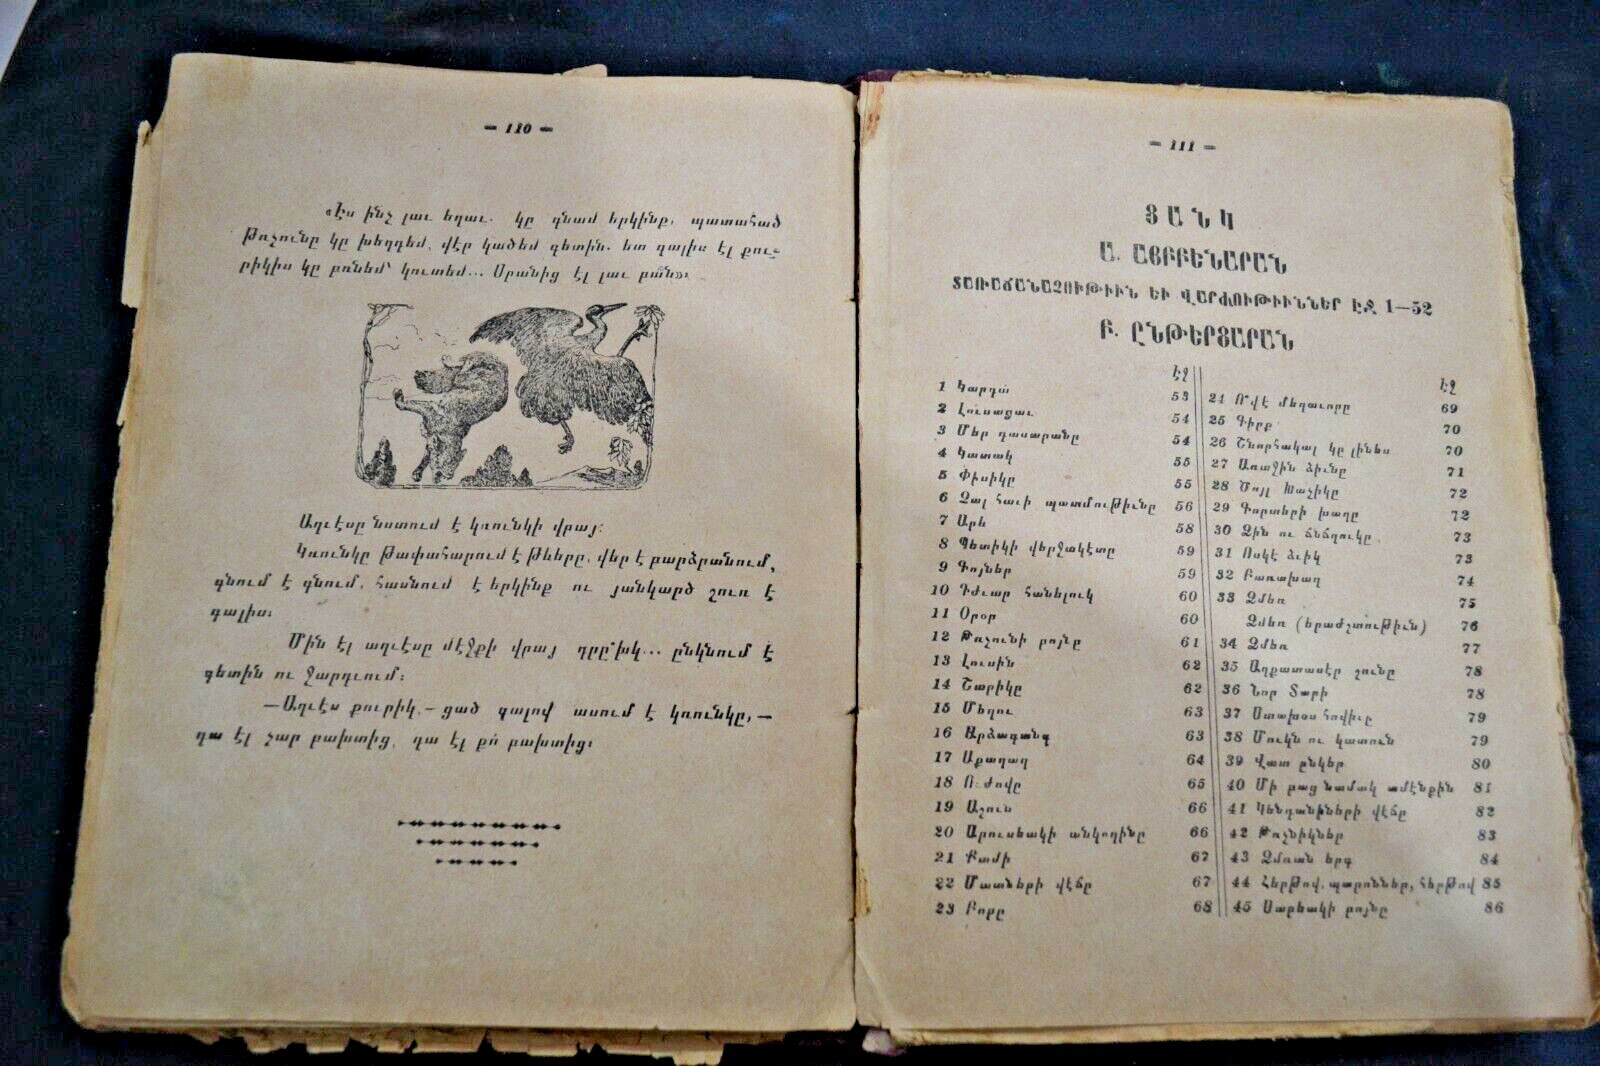 — 110 —
«Էս ինչ լաւ եղաւ. կը գնամ երկինք, պատահած
Թռչունը կը խեղդեմ, վէր կածեմ գետին. ետ գալիս էլ քու-
րիկիս կը բռնեմ՝ կուտեմ... Սրանից էլ լաւ բան»։
Աղւէսը նստում է կռունկի վրայ։
Կռունկը թափահարում է թևերը, վեր է բարձրանում,
գնում է գնում, հասնում է երկինք ու յանկարծ շուռ է
գալիս։
Մին էլ աղւէսը մէջքի վրայ դրը՛խկ... ընկնում է
գետին ու ջարդւում։
—Աղւէս քուրիկ,— ցած գալով ասում է կռունկը,—
դա էլ չար բախտից, դա էլ քո բախտից։
— 111 —
ՑԱՆԿ
Ա. ԱՅԲԲԵՆԱՐԱՆ
ՏԱՌԱՃԱՆԱՉՈՒԹԻՒՆ ԵՒ ՎԱՐԺՈՒԹԻՒՆՆԵՐ ԷՋ 1—52
Բ. ԸՆԹԵՐՑԱՐԱՆ
Էջ
1 Կարդա 53
2 Լուսացաւ 54
3 Մեր դասարանը 54
4 Կատակ 55
5 Փիսիկը 55
6 Չալ հաւի պատմութիւնը 56
7 Արև 58
8 Պետիկի վերջակէտը 59
9 Գոյներ 59
10 Դժւար հանելուկ 60
11 Օրօր 60
12 Թռչունի բոյնը 61
13 Լուսին 62
14 Շարիկը 62
15 Մեղու 63
16 Արձագանգ 63
17 Աքաղաղ 64
18 Ո՞ ժովը 65
19 Աշուն 66
20 Արուսեակի անկողինը 66
21 Քամի 67
22 Մատների վէճը 67
23 Բոբը 68
Էջ
24 Ո՞վ է մեղաւորը 69
25 Գիրք 70
26 Շնորհակալ կը լինես 70
27 Առաջին ձիւնը 71
28 Ծոյլ Խաչիկը 72
29 Գորտերի խաղը 72
30 Ձին ու ճնճղուկը 73
31 Ոսկէ ձւիկ 73
32 Բառախաղ 74
33 Ձմեռ 75
Ձմեռ (երաժշտութիւն) 76
34 Ձմեռ 77
35 Աղքատասէր շունը 78
36 Նոր Տարի 78
37 Ստախօս հովիւը 79
38 Մուկն ու կատուն 79
39 Վատ ընկեր 80
40 Մի բաց նամակ ամէնքին 81
41 Կենդանիների վէճը 82
42 Թռչնիկներ 83
43 Ձմռան երգ 84
44 Հերթով, պարոններ, հերթով 85
45 Սարեակի բոյնը 86